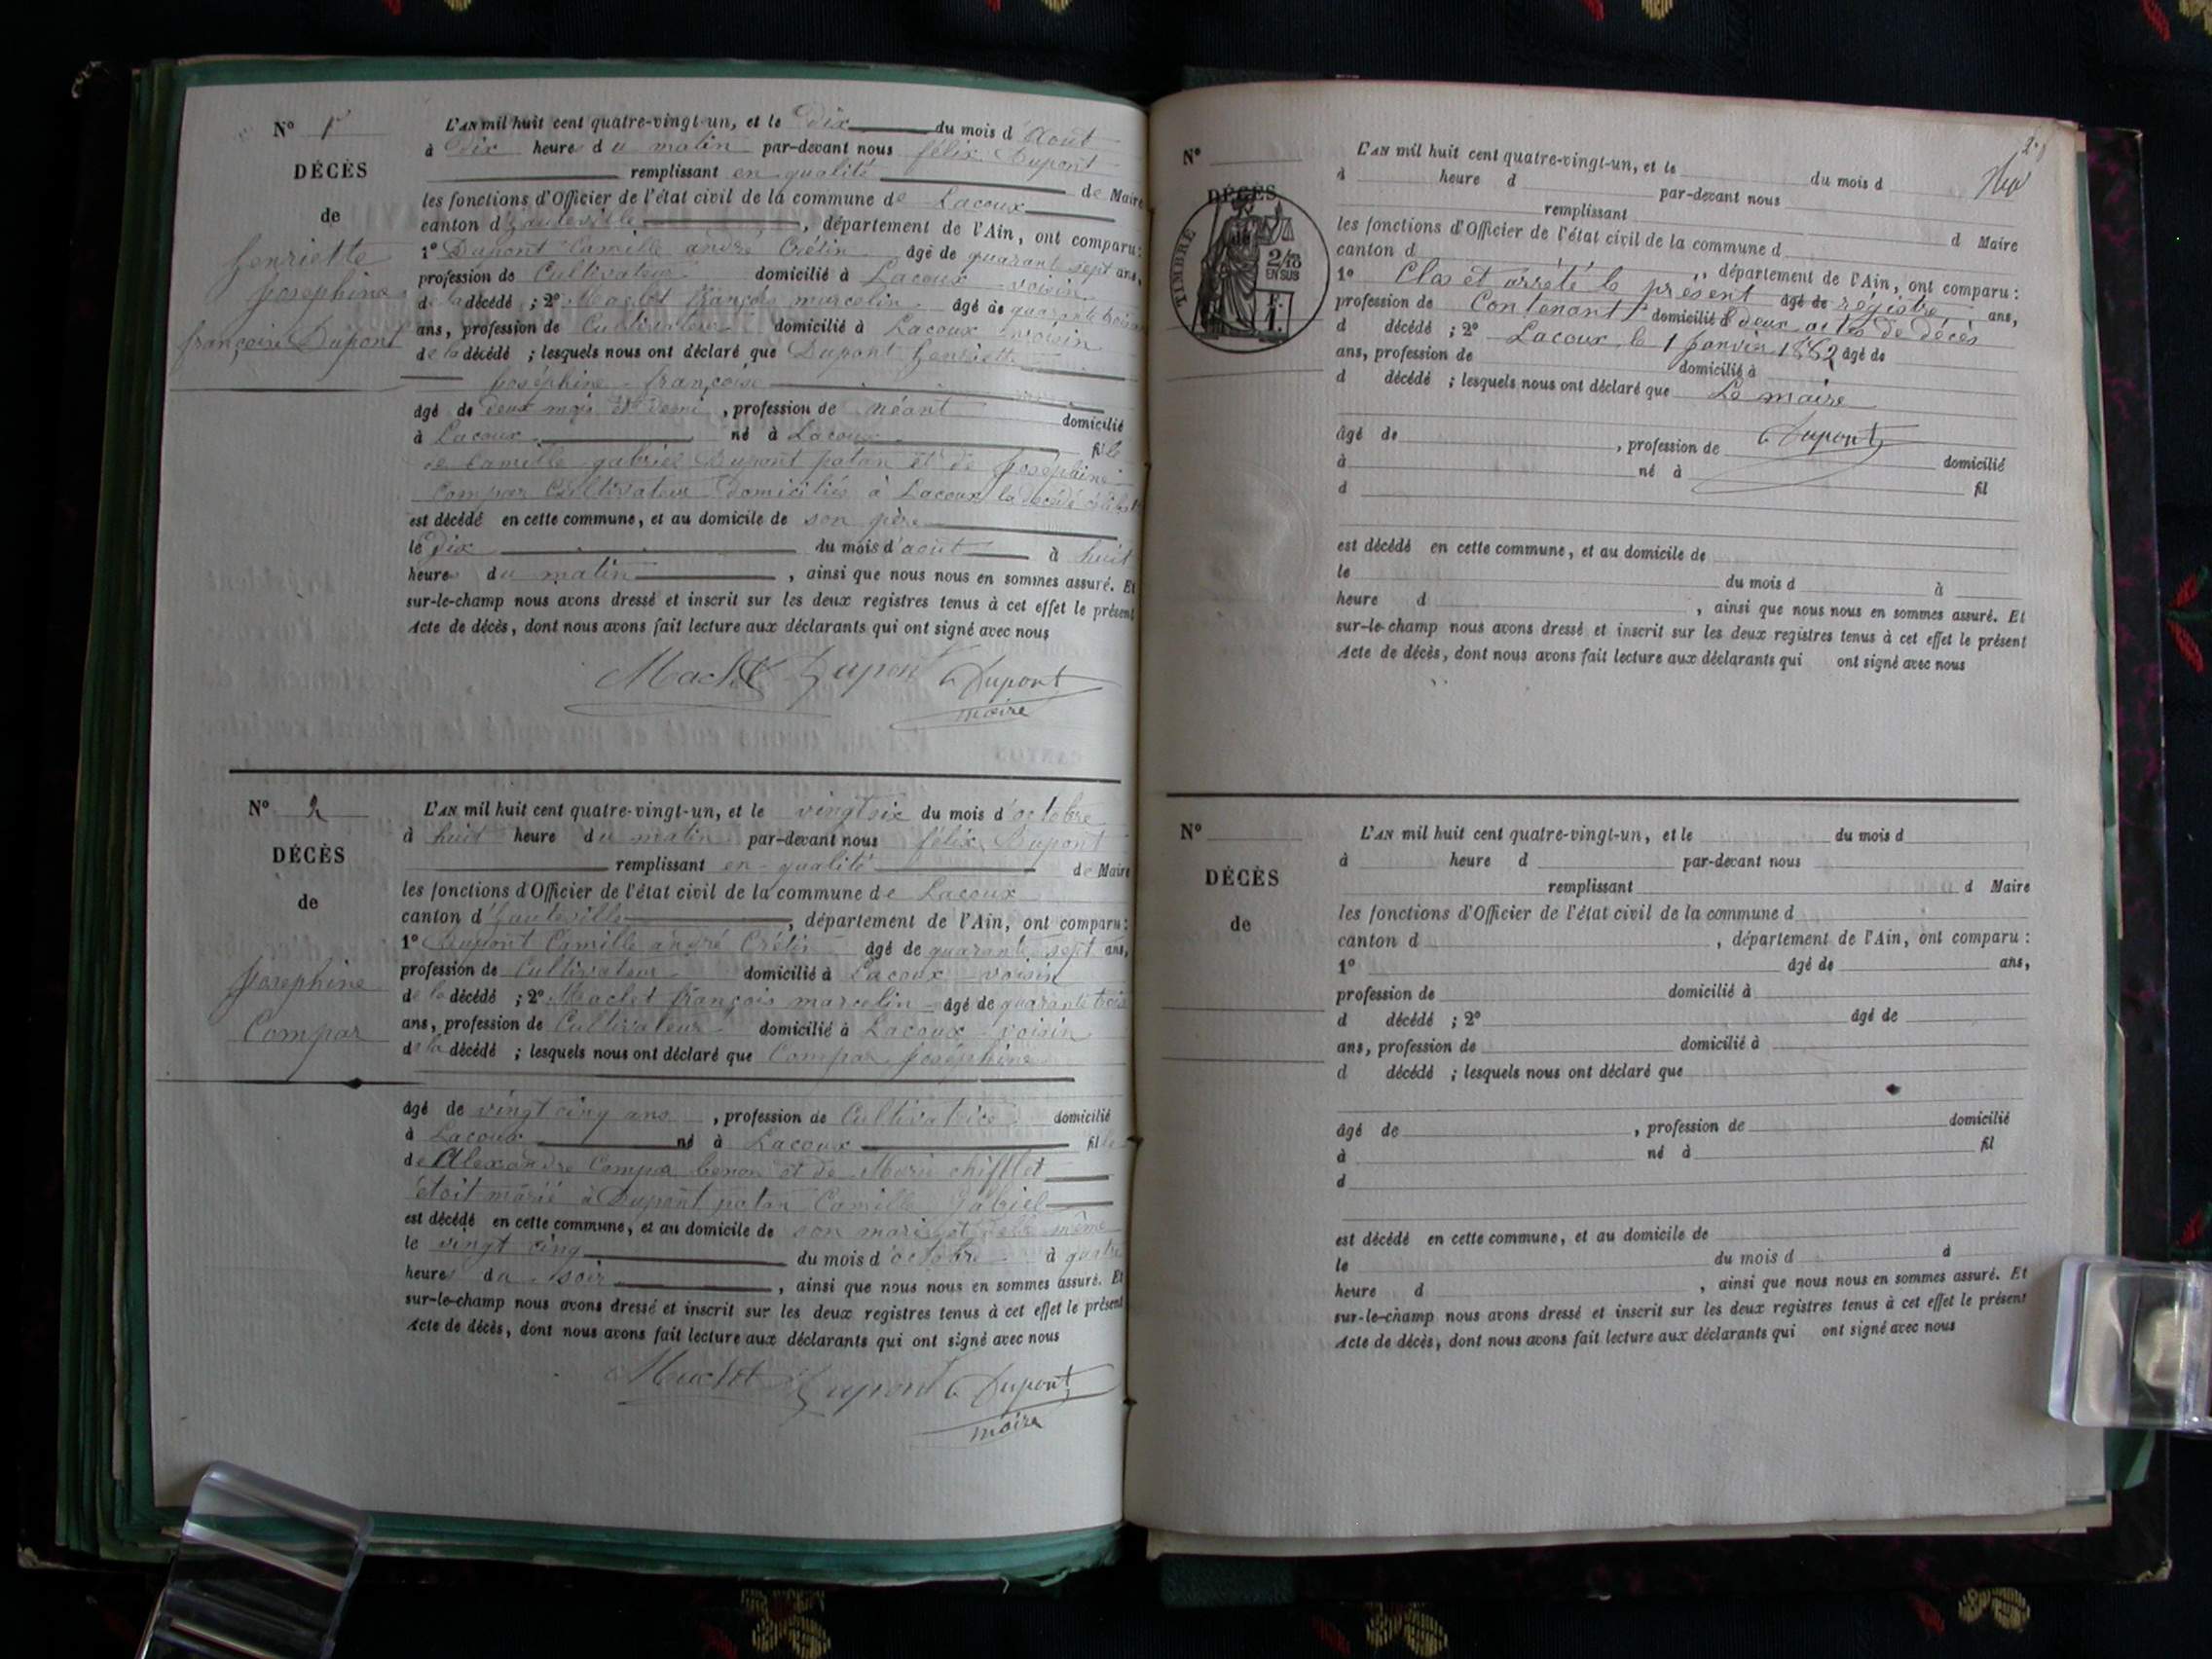 N° 1
DÉCÈS
de
henriette
josephine
françoise Dupont
L'AN mil huit cent quatre-vingt-un, et le Dix du mois d'Aout
à Dix heures du matin par-devant nous félix Dupont
remplissant en qualité de Maire
les fonctions d'Officier de l'état civil de la commune de Lacoux
canton d'hauteville, département de l'Ain, ont comparu:
1° Dupont Camille andré Crétin âgé de quarante sept ans,
profession de Cultivateur domicilié à Lacoux voisin
de la décédé ; 2° Maclet françois marcelin âgé de quarante trois
ans, profession de Cultivateur domicilié à Lacoux voisin
de la décédé ; lesquels nous ont déclaré que Dupont henriette
joséphine françoise
âgé de deux mois et demi, profession de néant domicilié
à Lacoux né à Lacoux fille
de Camille gabriel Dupont patan et de joséphine
Compar Cultivateur domiciliés à Lacoux la décédé
est décédé en cette commune, et au domicile de son père
le Dix du mois d'août à huit
heures du matin, ainsi que nous nous en sommes assuré. Et
sur-le-champ nous avons dressé et inscrit sur les deux registres tenus à cet effet le présent
Acte de décès, dont nous avons fait lecture aux déclarants qui ont signé avec nous
Maclet Dupont Dupont
maire
N° 2
DÉCÈS
de
Josephine
Compar
L'AN mil huit cent quatre-vingt-un, et le vingt six du mois d'octobre
à huit heure du matin par-devant nous félix Dupont
remplissant en qualité de Maire
les fonctions d'Officier de l'état civil de la commune de Lacoux
canton d'hauteville, département de l'Ain, ont comparu:
1° Dupont Camille andré Crétin âgé de quarante sept ans,
profession de Cultivateur domicilié à Lacoux voisin
de la décédé ; 2° Maclet françois marcelin âgé de quarante trois
ans, profession de Cultivateur domicilié à Lacoux voisin
de la décédé ; lesquels nous ont déclaré que Compar joséphine
âgé de vingt cinq ans, profession de Cultivatrice domicilié
à Lacoux né à Lacoux fille
de Alexandre Compa benon et de Marie chifflet
étoit marié à Dupont patan Camille gabiel
est décédé en cette commune, et au domicile de son mari et même
le vingt cinq du mois d'octobre à quatre
heures du soir, ainsi que nous nous en sommes assuré. Et
sur-le-champ nous avons dressé et inscrit sur les deux registres tenus à cet effet le présent
Acte de décès, dont nous avons fait lecture aux déclarants qui ont signé avec nous
Maclet Dupont Dupont
maire
N°
DÉCÈS
de
TIMBRE
2/10
EN SUS
F.
1.
L'AN mil huit cent quatre-vingt-un, et le du mois d
à heure d par-devant nous
remplissant d Maire
les fonctions d'Officier de l'état civil de la commune d
canton d , département de l'Ain, ont comparu :
1° Clos et arrêté le présent âgé de régistre ans,
profession de Contenant domicilié à deux actes de décès
d décédé ; 2° Lacoux le 1 janvier 1882 âgé de
ans, profession de domicilié à
d décédé ; lesquels nous ont déclaré que Le maire
âgé de , profession de Dupont domicilié
à né à fil
d
est décédé en cette commune, et au domicile de
le du mois d à
heure d , ainsi que nous nous en sommes assuré. Et
sur-le-champ nous avons dressé et inscrit sur les deux registres tenus à cet effet le présent
Acte de décès, dont nous avons fait lecture aux déclarants qui ont signé avec nous
N°
DÉCÈS
de
L'AN mil huit cent quatre-vingt-un, et le du mois d
à heure d par-devant nous
remplissant d Maire
les fonctions d'Officier de l'état civil de la commune d
canton d , département de l'Ain, ont comparu :
1° âgé de ans,
profession de domicilié à
d décédé ; 2° âgé de
ans, profession de domicilié à
d décédé ; lesquels nous ont déclaré que
âgé de , profession de domicilié
à né à fil
d
est décédé en cette commune, et au domicile de
le du mois d à
heure d , ainsi que nous nous en sommes assuré. Et
sur-le-champ nous avons dressé et inscrit sur les deux registres tenus à cet effet le présent
Acte de décès, dont nous avons fait lecture aux déclarants qui ont signé avec nous